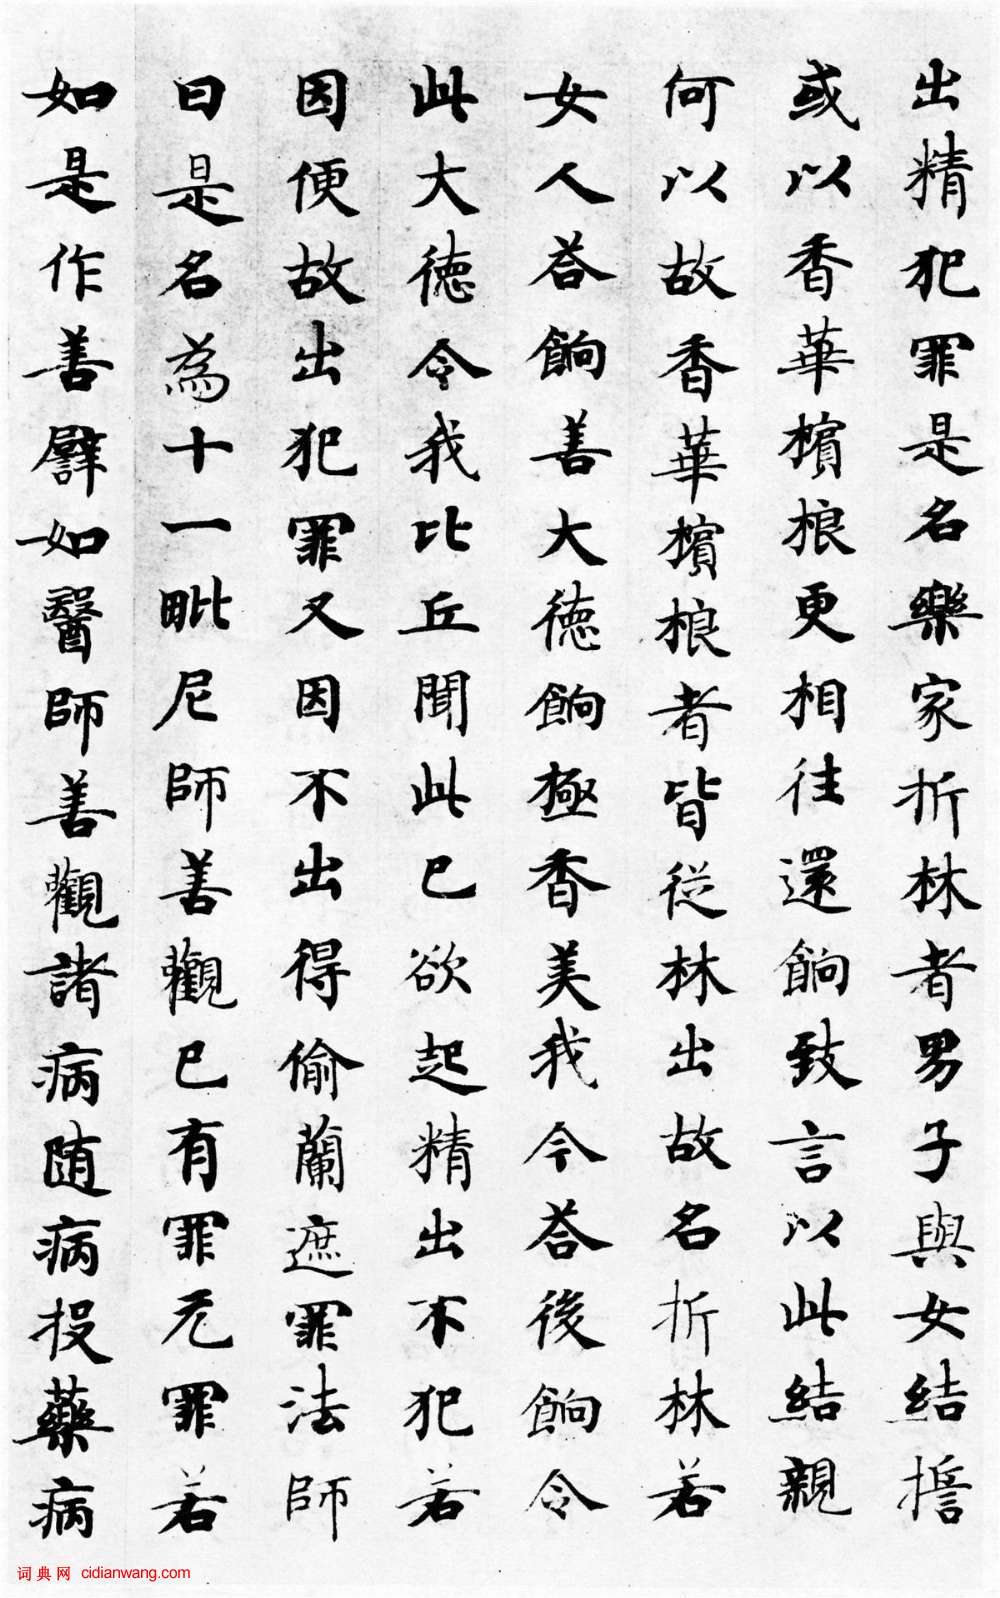 出精犯罪是名樂家折林者男子與女結擔
或以香華檳桹更相往還餉致言以此結親
何以故香華檳桹者皆從林出故名折林若
女人荅餉善大徳餉極香美我今荅後餉令
此大徳令我比丘聞此已欲起精出不犯若
因便故出犯罪又因不出得偷蘭遮罪法師
曰是名為十一毗尼師善觀已有罪无罪若
如是作善譬如醫師善觀諸病随病投藥病
词典网 cidianwang.com